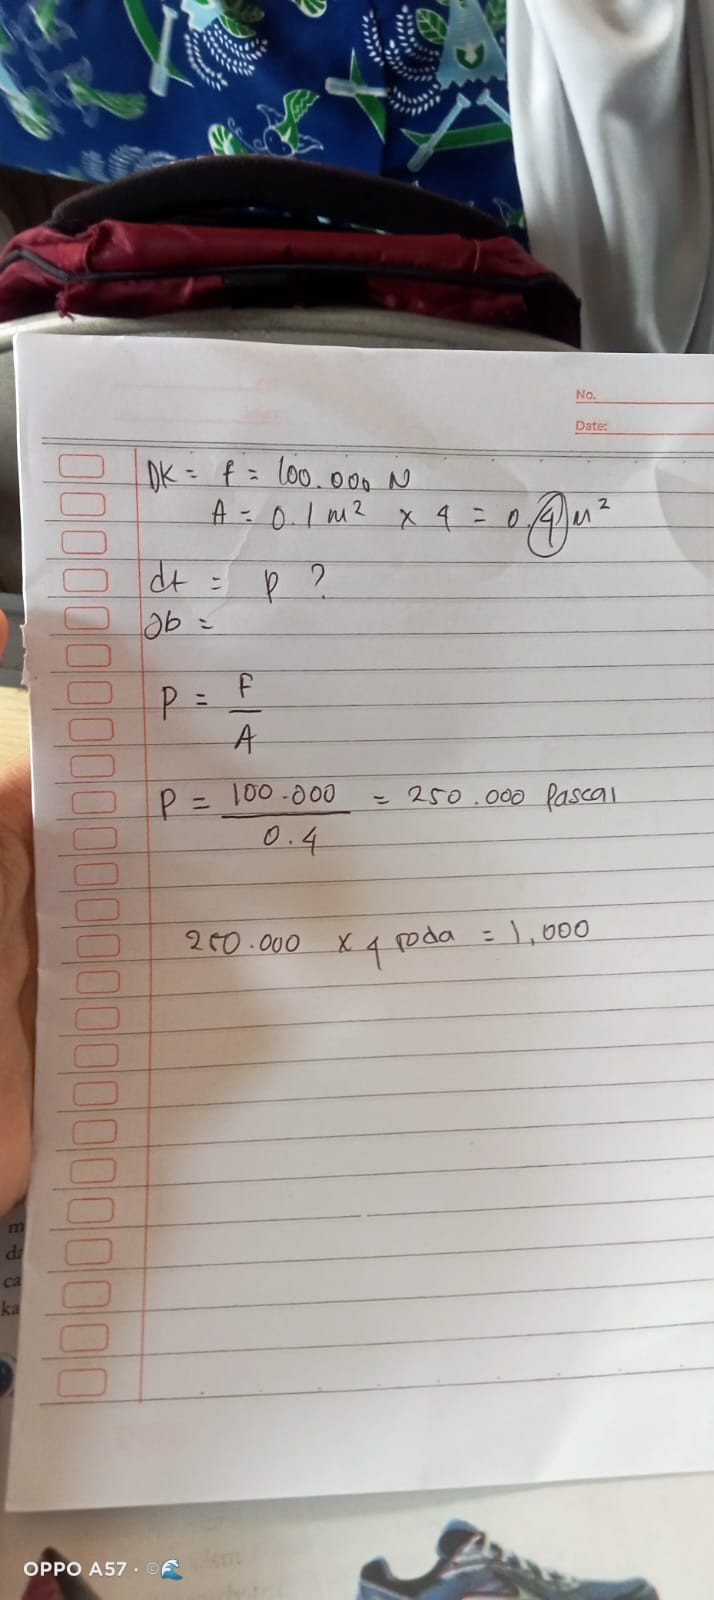 No.
Date:
DK = f = 100.000 N
A = 0.1 m² x 4 = 0.4 m²
dt = p ?
db =
P = F
A
P = 100.000 = 250.000 Pascal
0.4
250.000 x 4 roda = 1,000
m
da
ca
ka
OPPO A57 · ©🌊